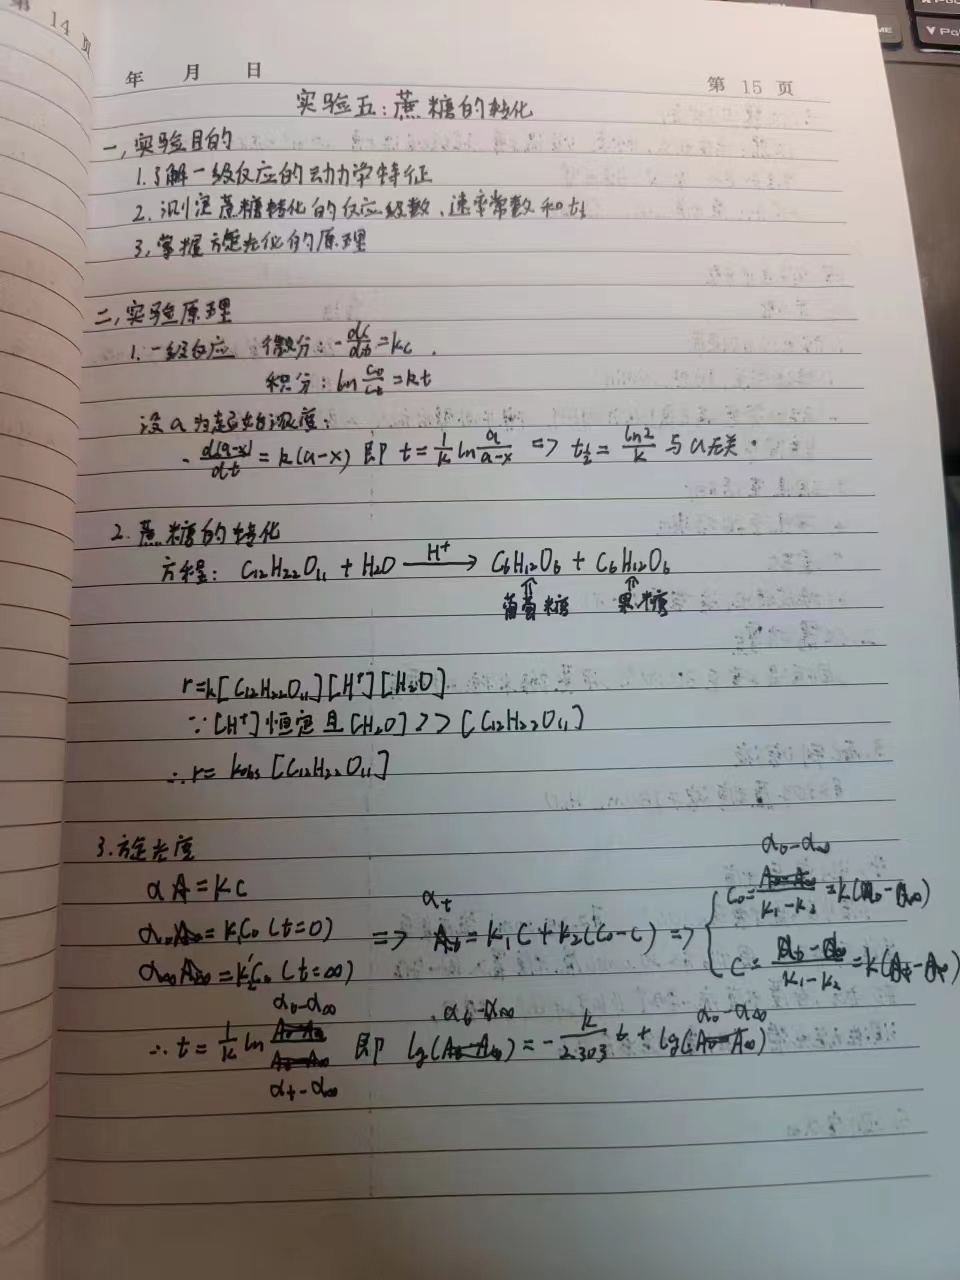 第 14 页
年 月 日
第 15 页
实验五:蔗糖的转化
一,实验目的
1.了解一级反应的动力学特征
2.测定蔗糖转化的反应级数、速率常数和t½
3,掌握旋光仪的原理
二,实验原理
1.一级反应 微分:-dc/dt=kc.
积分:ln c₀/cₜ=kt
设a为起始浓度:
-d(a-x)/dt=k(a-x) 即 t=1/k ln a/(a-x) => t½=ln2/k 与a无关.
2.蔗糖的转化
方程: C₁₂H₂₂O₁₁+H₂O —H⁺→ C₆H₁₂O₆+C₆H₁₂O₆
葡萄糖 果糖
r=k[C₁₂H₂₂O₁₁][H⁺][H₂O]
∵[H⁺]恒定且[H₂O]>>[C₁₂H₂₂O₁₁]
∴r= kobs[C₁₂H₂₂O₁₁]
3.旋光度
α =KC
α₀ =K₁C₀(t=0) => αₜ =K₁C+K₂(C₀-C) => { C₀=(α₀-α∞)/(K₁-K₂)=K(α₀-α∞)
α∞ =K₂C₀(t=∞) C=(αₜ-α∞)/(K₁-K₂)=K(αₜ-α∞)
∴t=1/k ln (α₀-α∞)/(αₜ-α∞) 即 lg(αₜ-α∞)=-k/2.303 t+lg(α₀-α∞)